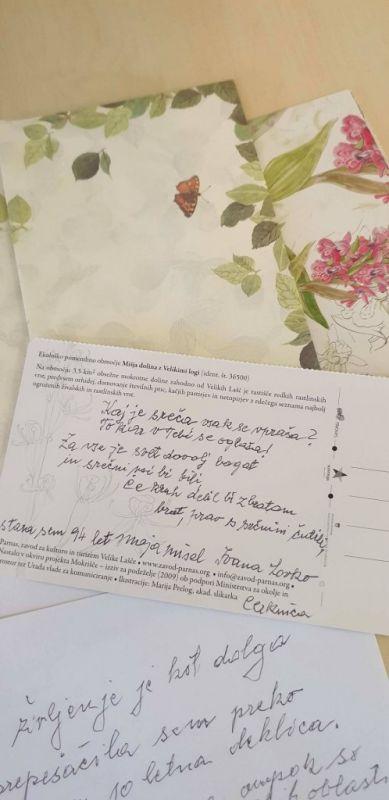 Ekološko pomembno območje Mišja dolina z Velikimi logi (ident. št. 36500)
Na območju 3,5 km² obsežne mokrotne doline zahodno od Velikih Lašč je rastišče redkih rastlinskih
vrst, predvsem orhidej, domovanje številnih ptic, kačjih pastirjev in netopirjev z rdečega seznama najbolj
ogroženih živalskih in rastlinskih vrst.
Kaj je sreča vsak se vpraša?
To kar v tebi se oglaša!
Za vse je svet dovolj bogat
in srečni vsi bi bili
če kruh delil bi z bratom
brat, prav s srčnimi čutili
stara sem 94 let moja misel Ivana Lovko
Cerknica
Parnas, zavod za kulturo in turizem Velike Lašče • www.zavod-parnas.org • info@zavod-parnas.org •
Nastalo v okviru projekta Mokrišče – izziv za podeželje (2009) ob podpori Ministrstva za okolje in
prostor ter Urada vlade za komuniciranje • Ilustracije: Marija Prelog, akad. slikarka
življenje je kot dolga
prepešačila sem preko
letna deklica.
ampak so